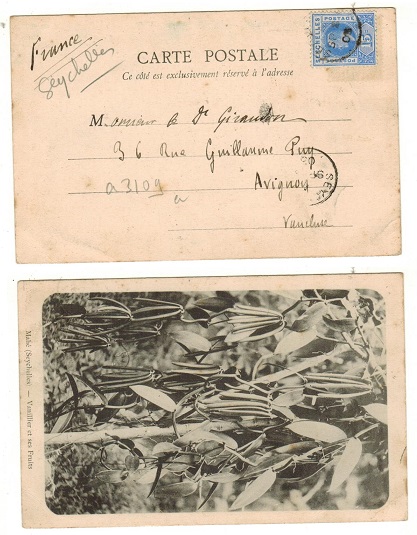 France
Seychelles
CARTE POSTALE
Ce côté est exclusivement réservé à l'adresse
SEYCHELLES POSTAGE
Monsieur le Dr Giraudon
36 Rue Guillaume Puy
Avignon
Vaucluse
a3109
a
Mahé (Seychelles) — Vanillier et ses Fruits